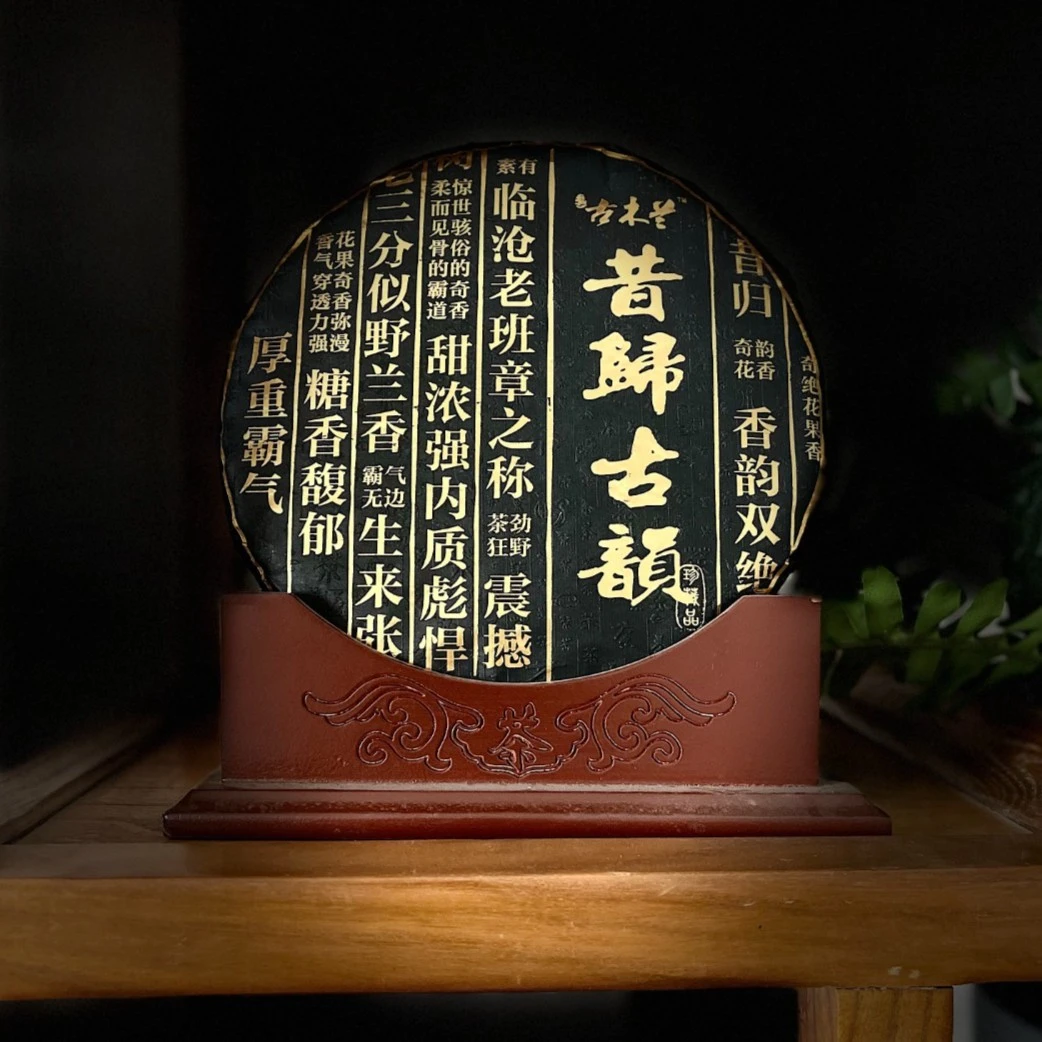 奇绝花果香
昔归 奇韵花香 香韵双绝
古木兰™
昔歸古韻
珍藏品
素有 临沧老班章之称 茶劲狂野 震撼
惊世骇俗的奇香 柔而见骨的霸道 甜浓强内质彪悍
三分似野兰香 霸气无边 生来张
花果奇香弥漫 香气穿透力强 糖香馥郁
厚重霸气
茶